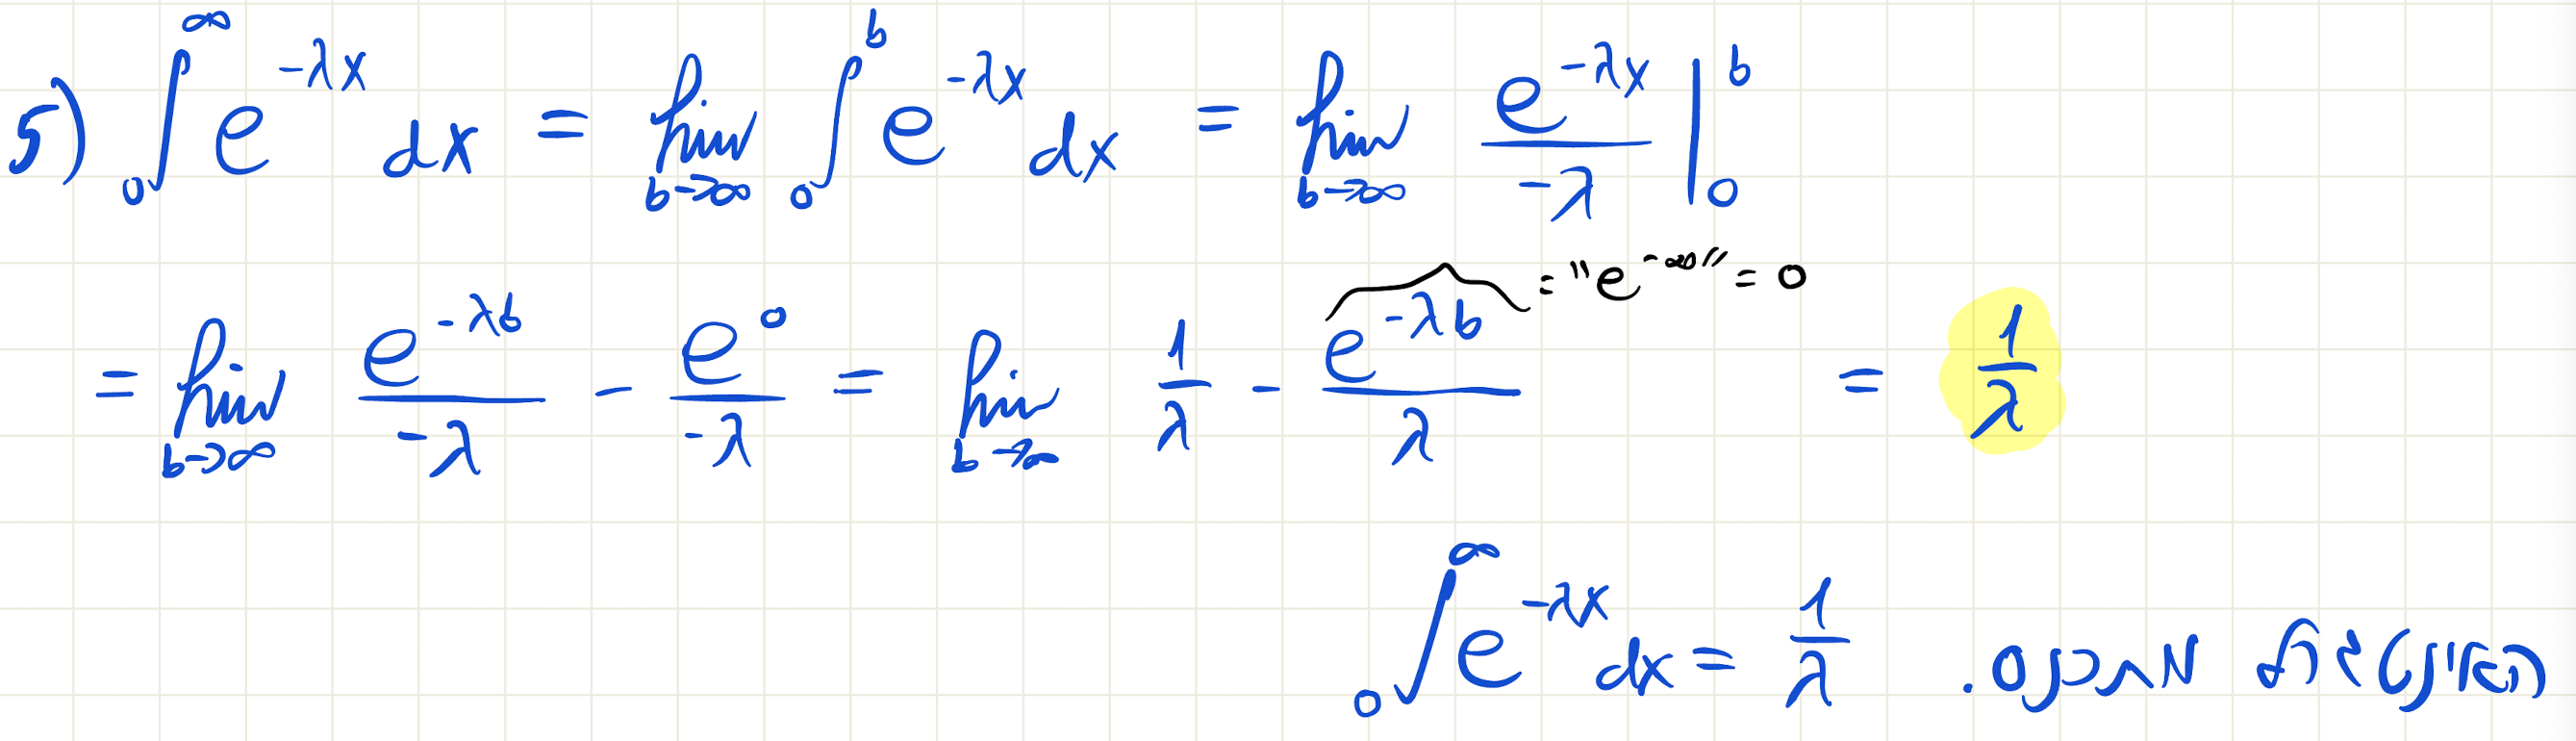 5) ∫₀^∞ e^{-λx} dx = lim_{b→∞} ∫₀^b e^{-λx} dx = lim_{b→∞} e^{-λx}/(-λ) |₀^b
= lim_{b→∞} e^{-λb}/(-λ) - e^0/(-λ) = lim_{b→∞} 1/λ - e^{-λb}/λ = 1/λ
="e^{-∞}" = 0
האינטגרל מתכנס. ∫₀^∞ e^{-λx} dx = 1/λ